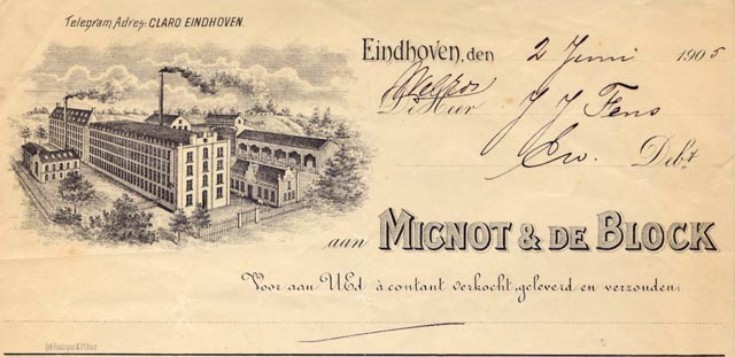 Telegram Adres: CLARO EINDHOVEN.
Eindhoven, den 2 Juni 1905
De Heer J J Fens
Debt
aan MIGNOT & DE BLOCK
Voor aan UEd à contant verkocht, geleverd en verzonden: